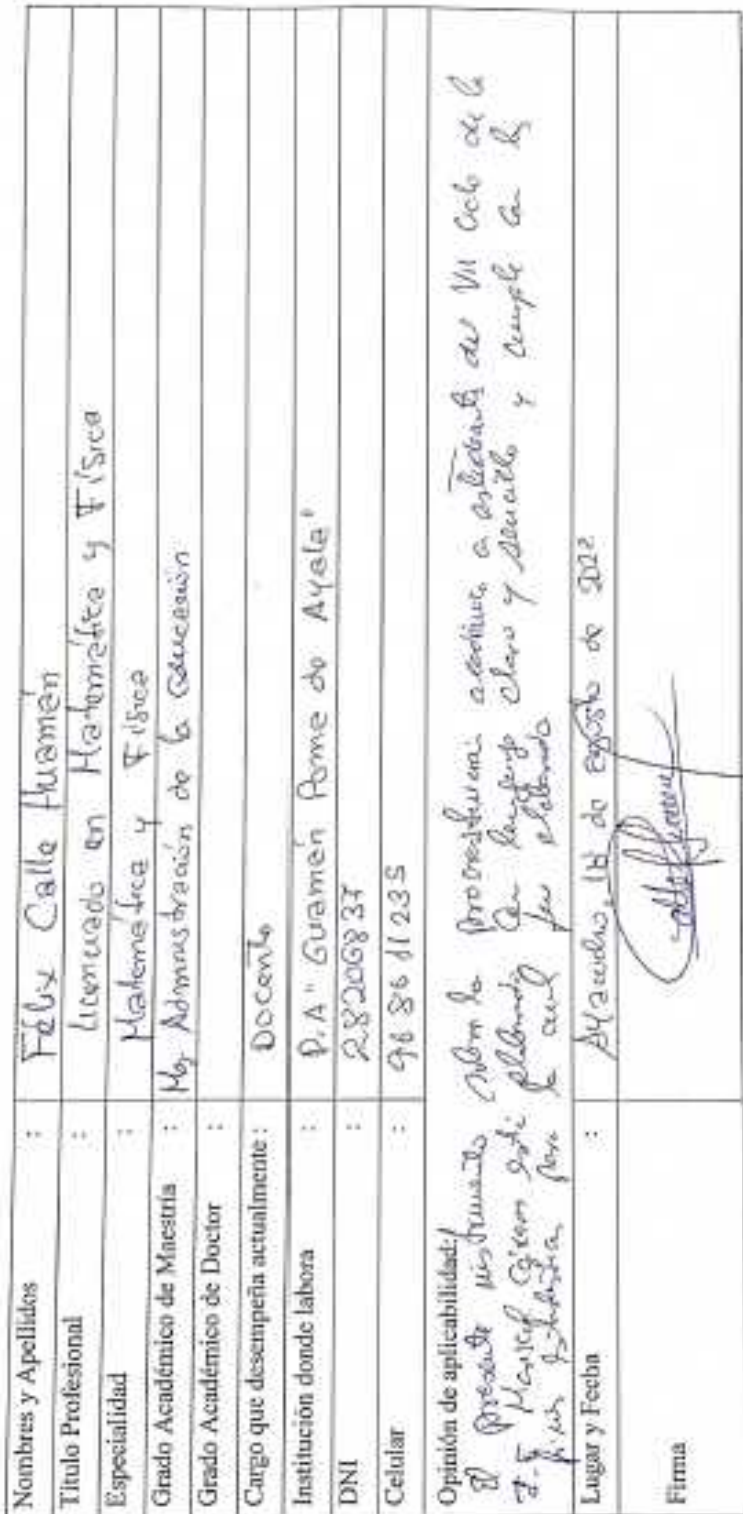 Nombres y Apellidos : Félix Calle Huamán
Titulo Profesional : Licenciado en Matemática y Física
Especialidad : Matemática y Física
Grado Académico de Maestría : Mg. Administración de la Educación
Grado Académico de Doctor :
Cargo que desempeña actualmente : Docente
Institución donde labora : P.A "Guamán Poma de Ayala"
DNI : 28206837
Celular : 96 86 11 235
Opinión de aplicabilidad:
El presente instrumento sobre la procrastinación académica a estudiante del VII Ciclo de la
I.E Mariscal Cáceres está elaborado con lenguaje claro y sencillo y cumple con
para la cual fue elaborado
Lugar y Fecha : Ayacucho, 18 de agosto de 2022
Firma